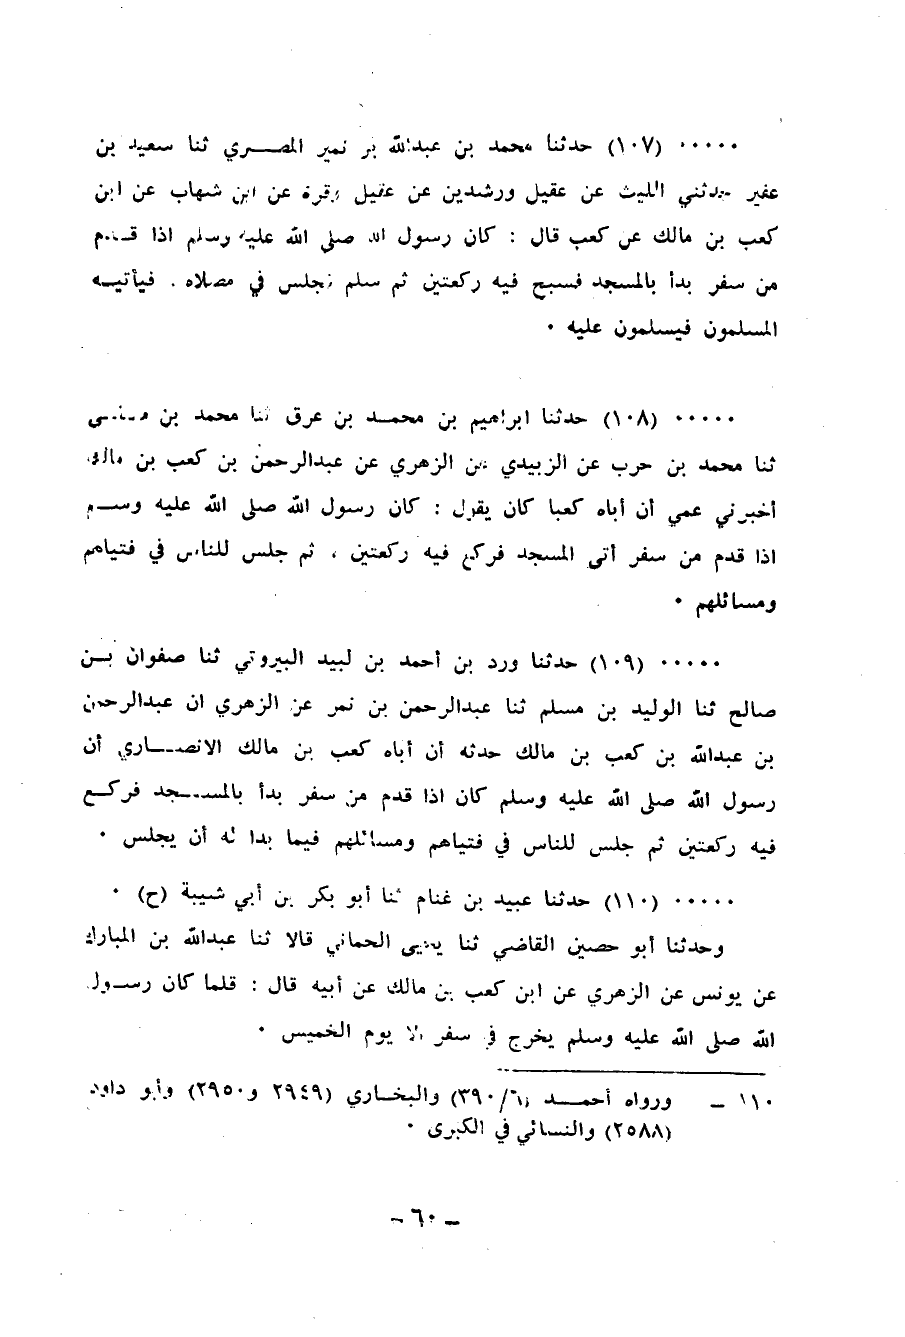 ٠٠٠٠٠ (١٠٧) حدثنا محمد بن عبدالله بن نمير المصري ثنا سعيد بن
عفير حدثني الليث عن عقيل ورشدين عن عقيل وقرة عن ابن شهاب عن ابن
كعب بن مالك عن كعب قال : كان رسول الله صلى الله عليه وسلم اذا قدم
من سفر بدأ بالمسجد فسبح فيه ركعتين ثم سلم فجلس في مصلاه . فيأتيه
المسلمون فيسلمون عليه ٠
٠٠٠٠٠ (١٠٨) حدثنا ابراهيم بن محمد بن عرق ثنا محمد بن مصفى
ثنا محمد بن حرب عن الزبيدي عن الزهري عن عبدالرحمن بن كعب بن مالك
أخبرني عمي أن أباه كعبا كان يقول : كان رسول الله صلى الله عليه وسلم
اذا قدم من سفر أتى المسجد فركع فيه ركعتين ، ثم جلس للناس في فتياهم
ومسائلهم ٠
٠٠٠٠٠ (١٠٩) حدثنا ورد بن أحمد بن لبيد البيروتي ثنا صفوان بن
صالح ثنا الوليد بن مسلم ثنا عبدالرحمن بن نمر عن الزهري ان عبدالرحمن
بن عبدالله بن كعب بن مالك حدثه أن أباه كعب بن مالك الانصاري أن
رسول الله صلى الله عليه وسلم كان اذا قدم من سفر بدأ بالمسجد فركع
فيه ركعتين ثم جلس للناس في فتياهم ومسائلهم فيما بدا له أن يجلس ٠
٠٠٠٠٠ (١١٠) حدثنا عبيد بن غنام ثنا أبو بكر بن أبي شيبة (ح) ٠
وحدثنا أبو حصين القاضي ثنا يحيى الحماني قالا ثنا عبدالله بن المبارك
عن يونس عن الزهري عن ابن كعب بن مالك عن أبيه قال : قلما كان رسول
الله صلى الله عليه وسلم يخرج في سفر الا يوم الخميس ٠
١١٠ ـ ورواه أحمد (٣٩٠/٦) والبخاري (٢٩٤٩ و٢٩٥٠) وأبو داود
(٢٥٨٨) والنسائي في الكبرى ٠
ـ ٦٠ ـ